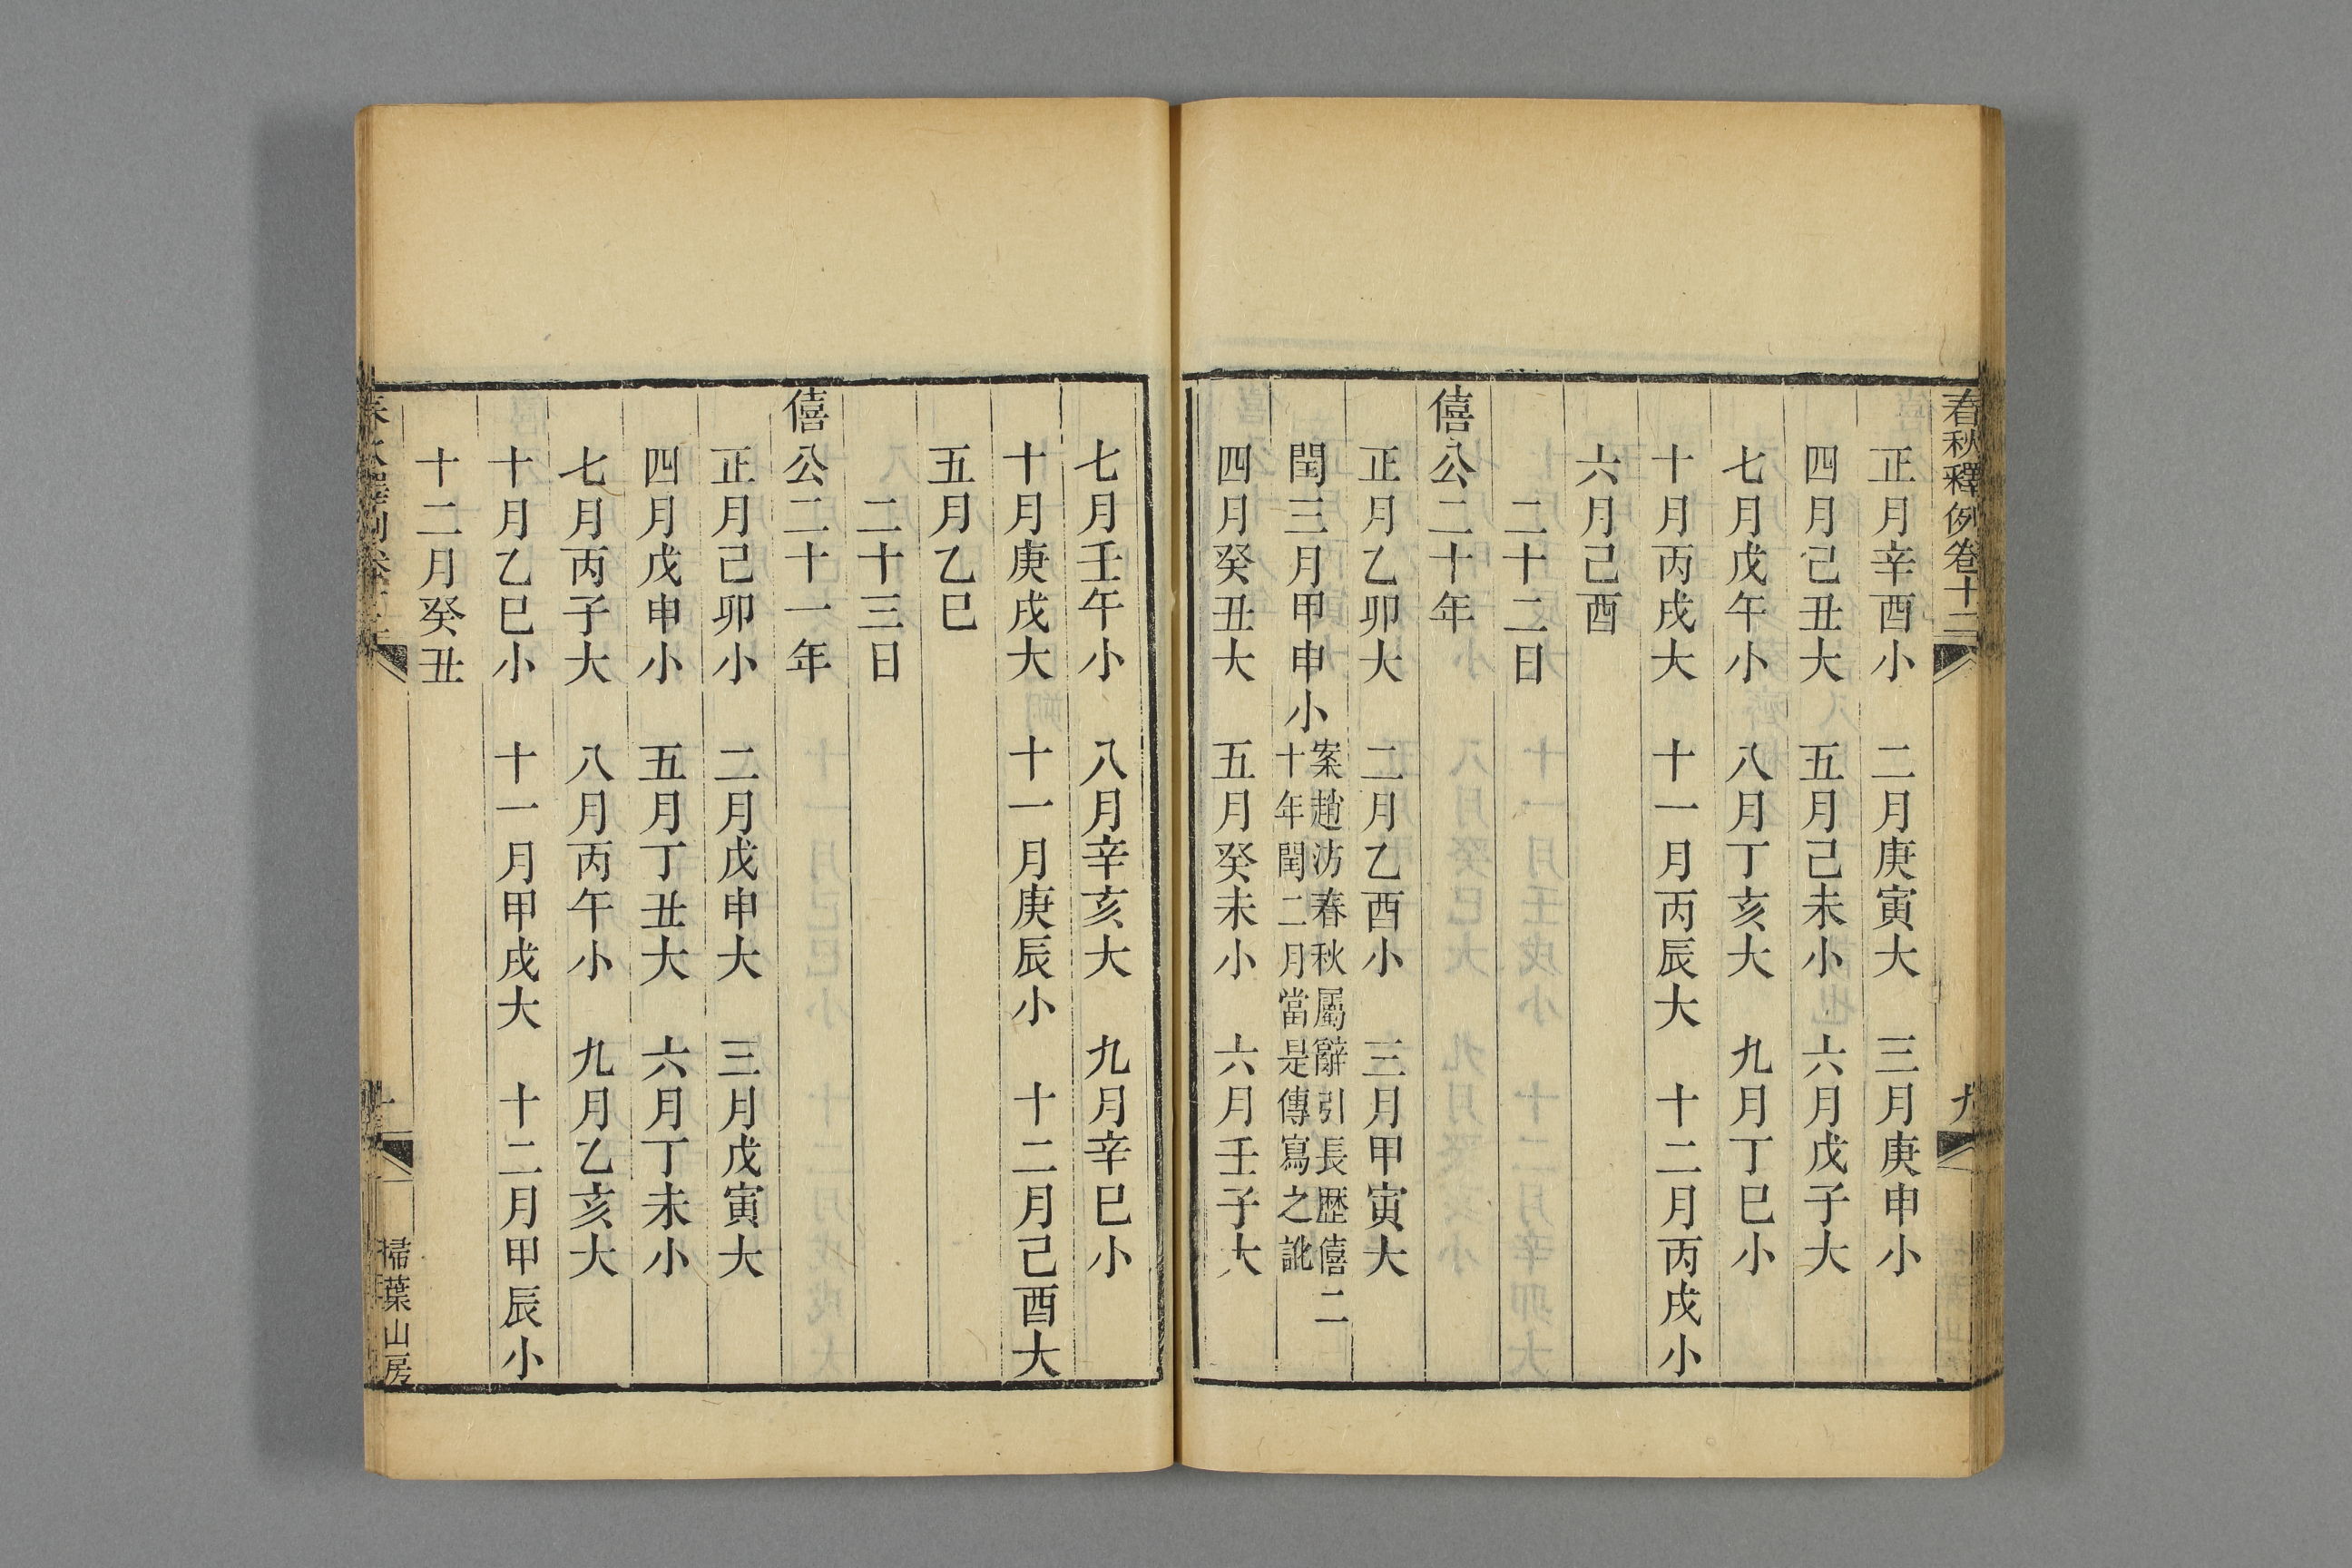 春秋釋例卷十二
九
正月辛酉小　二月庚寅大　三月庚申小
四月己丑大　五月己未小　六月戊子大
七月戊午小　八月丁亥大　九月丁巳小
十月丙戌大　十一月丙辰大　十二月丙戌小
六月己酉
二十二日
僖公二十年
正月乙卯大　二月乙酉小　三月甲寅大
閏三月甲申小案趙汸春秋屬辭引長歴僖二
十年閏二月當是傳寫之訛
四月癸丑大　五月癸未小　六月壬子大
七月壬午小　八月辛亥大　九月辛巳小
十月庚戌大　十一月庚辰小　十二月己酉大
五月乙巳
二十三日
僖公二十一年
正月己卯小　二月戊申大　三月戊寅大
四月戊申小　五月丁丑大　六月丁未小
七月丙子大　八月丙午小　九月乙亥大
十月乙巳小　十一月甲戌大　十二月甲辰小
十二月癸丑
掃葉山房